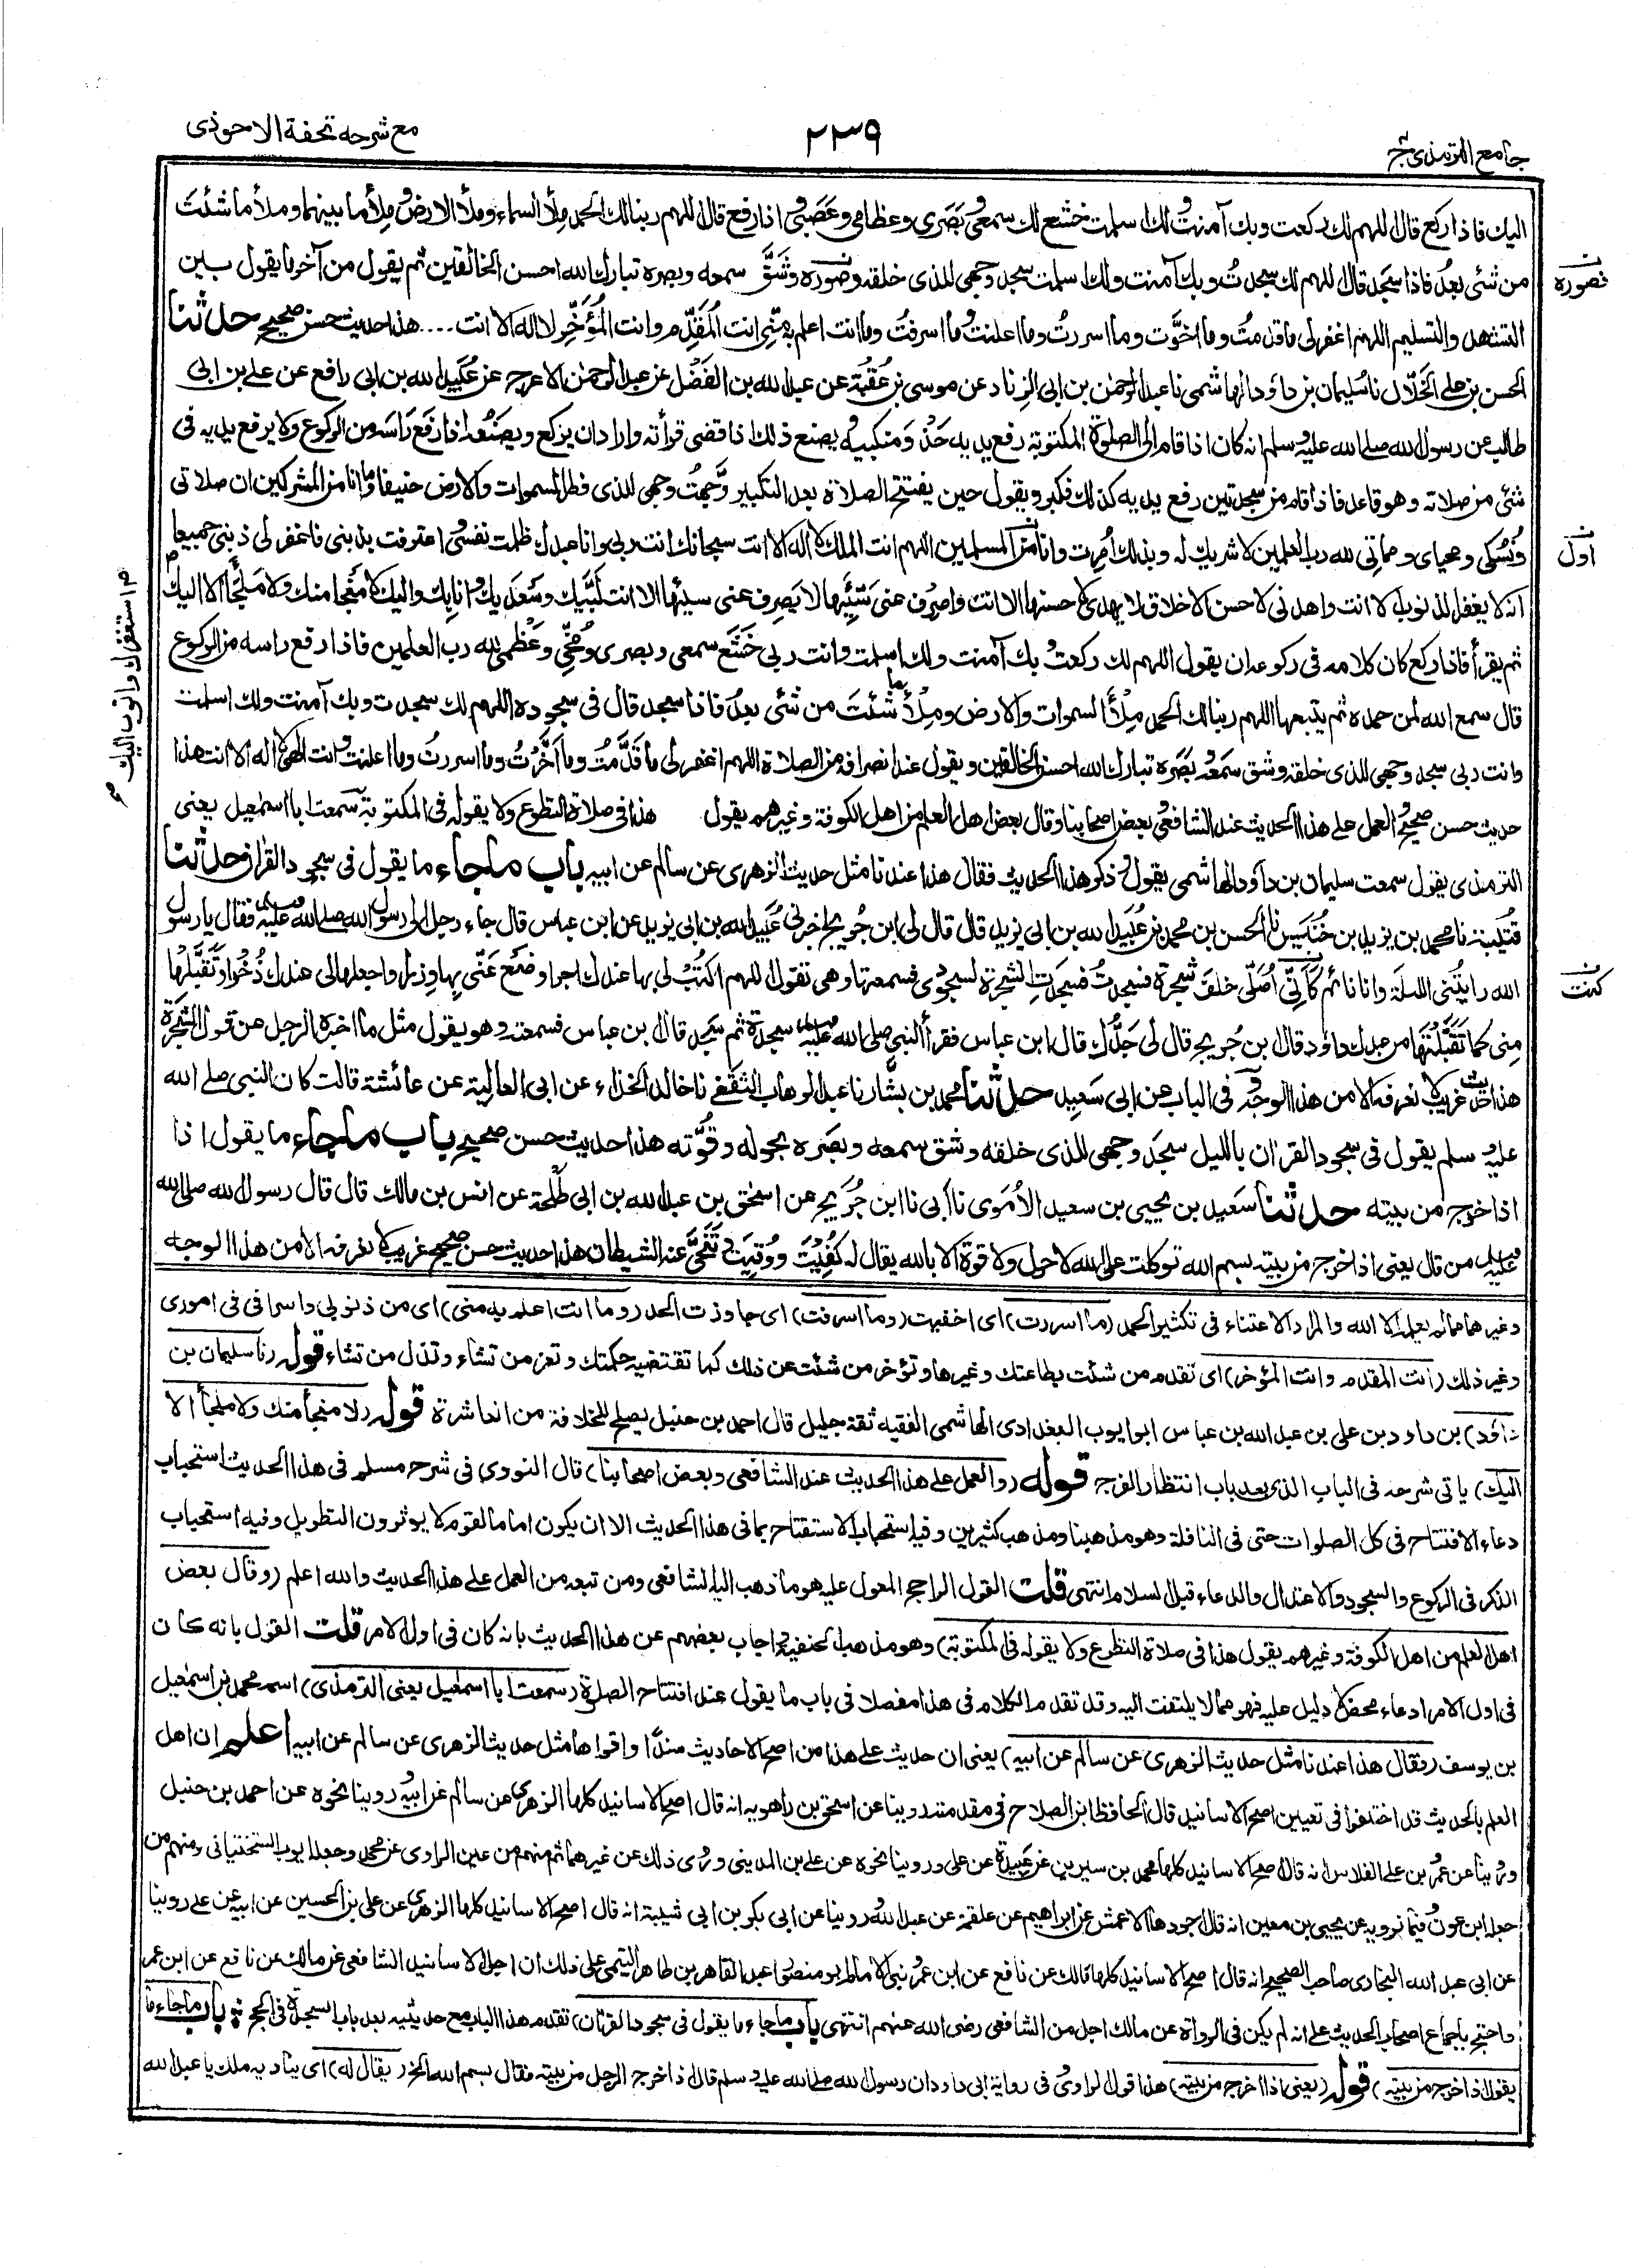 جامع الترمذي ج
٢٣٩
مع شرحه تحفة الاحوذي
اليك فاذا ركع قال اللهم لك ركعت وبك آمنت ولك اسلمت خشع لك سمعي وبَصَري وعظامي وعَصَبي واذا رفع قال اللهم ربنا لك الحمد مِلأَ السماء وملأ الارض ومِلأَ ما بينهما وملأ ما شئتَ
من شئ بعدُ فاذا سجد قال اللهم لك سجدتُ وبك آمنت ولك اسلمت سجد وجهي للذي خلقه وصَوَّره وشَقَّ سمعه وبصره تبارك الله احسن الخالقين ثم يقول من آخر ما يقول بين
فصوره
التشهد والتسليم اللهم اغفر لي ما قدمتُ وما اخَّرت وما اسررتُ وما اعلنت وما اسرفتُ وما انت اعلم به مِنّي انت المُقَدِّم وانت المُؤَخِّر لا اله الا انت .... هذا حديث حسن صحيح حدثنا
الحسن بن علي الخَلّال نا سُليمان بن داؤد الهاشمي نا عبد الرحمن بن ابي الزناد عن موسى بن عُقبة عن عبد الله بن الفَضْل عن عبد الرحمن الاعرج عن عُبَيد الله بن ابي رافع عن علي بن ابي
طالب عن رسول الله صلى الله عليه وسلم انه كان اذا قام الى الصلوة المكتوبة رفع يديه حَذْوَ مَنكبيه ويصنع ذلك اذا قضى قرأته واراد ان يركع ويصنَعُه اذا رفَع رَاسَه من الركوع ولا يرفع يديه في
شئ من صلاته وهو قاعد فاذا قام من سجدتين رفع يديه كذلك فكبر ويقول حين يفتتح الصلاة بعد التكبير وَجَّهتُ وجهي للذي فطر السموات والارض حنيفا وما انا من المشركين ان صلاتي
ونُسُكي ومحياي ومماتي لله رب العلمين لا شريك له وبذلك اُمِرت وانا من المسلمين اللهم انت الملك لا اله الا انت سبحانك انت ربي وانا عبدك ظلمت نفسي واعترفت بذنبي فاغفر لي ذنبي جميعا
اول
انه لا يغفر الذنوب الا انت واهدني لاحسن الاخلاق لا يهدي لاحسنها الا انت واصرِف عني سَيِّئها لا يَصرِف عني سيئها الا انت لَبَّيك وسَعدَيك وانا بك واليك لا مَنْجا منك ولا مَلجأ الا اليك
استغفرك واتوب اليك
ثم يقرأ فاذا ركع كان كلامه في ركوعه ان يقول اللهم لك ركعت وبك آمنت ولك اسلمت وانت ربي خَشَعَ سمعي وبصري ومُخّي وعَظْمي لله رب العلمين فاذا رفع راسه من الركوع
قال سمع الله لمن حمده ثم يتبعها اللهم ربنا لك الحمد مِلأَ السموات والارض ومِلأَ ما شئتَ من شئ بعدُ فاذا سجد قال في سجوده اللهم لك سجدت وبك آمنت ولك اسلمت
وانت ربي سجد وجهي للذي خلقه وشق سَمعَه وبَصَره تبارك الله احسن الخالقين ويقول عند انصرافه من الصلاة اللهم اغفر لي ما قَدَّمتُ وما اَخَّرْتُ وما اسررتُ وما اعلنت وانت الهي لا اله الا انت هذا
حديث حسن صحيح والعمل على هذا الحديث عند الشافعي وبعض اصحابنا وقال بعض اهل العلم من اهل الكوفة وغيرهم يقول هذا في صلاة التطوع ولا يقوله في المكتوبة سمعت ابا اسمعيل يعني
الترمذي يقول سمعت سليمان بن داؤد الهاشمي يقول وذكر هذا الحديث فقال هذا عندنا مثل حديث الزهري عن سالم عن ابيه باب ما جاء ما يقول في سجود القران حدثنا
قُتَيبة نا محمد بن يزيد بن خُنَيس نا الحسن بن محمد بن عُبَيد الله بن ابي يزيد قال قال لي ابن جُريج اخبرني عُبَيد الله بن ابي يزيد عن ابن عباس قال جاء رجل الى رسول الله صلى الله عليه وسلم فقال يا رسول
الله رايتُني الليلة وانا نائم كَأَنّي اُصَلّي خلف شجرة فسجدتُ فسجدَتِ الشجرة لسجودي فسمعتها وهي تقول اللهم اكتُبْ لي بها عندك اجرا وضَع عَنّي بها وِزرا واجعلها لي عندك ذُخرا وتَقَبَّلْها
كنت
مِنّي كما تَقَبَّلْتَها من عبدك داؤد قال ابن جُريج قال لي جَدُّك قال ابن عباس فقرأ النبي صلى الله عليه وسلم سجدة ثم سجد قال ابن عباس فسمعته وهو يقول مثل ما اخبره الرجل عن قول الشجرة
هذا حديث غريب لا نعرفه الا من هذا الوجه وفي الباب عن ابي سَعيد حدثنا محمد بن بَشَّار نا عبد الوهاب الثقفي نا خالد الحذاء عن ابي العالية عن عائشة قالت كان النبي صلى الله
عليه وسلم يقول في سجود القران بالليل سجَد وجهي للذي خلقه وشق سمعه وبصَره بحوله وقُوَّته هذا حديث حسن صحيح باب ما جاء ما يقول اذا
اذا خرج من بيته حدثنا سَعيد بن يحيى بن سعيد الاُمَوي نا اَبي نا ابن جُرَيج عن اسحق بن عبد الله بن ابي طَلْحة عن انس بن مالك قال قال رسول الله صلى الله
عليه وسلم من قال يعني اذا خرج من بيته بسم الله توكلت على الله لا حول ولا قوة الا بالله يقال له كُفِيْتَ ووُقِيتَ وتَنَحّى عنه الشيطان هذا حديث حسن صحيح غريب لا نعرفه الا من هذا الوجه
وغيرهما مما لم يعلمه الا الله والمراد الاعتناء في تكثير الحمد (ما اسررت) اي اخفيت (وما اسرفت) اي جاوزت الحد (وما انت اعلم به مني) اي من ذنوبي واسرافي في اموري
وغير ذلك (انت المقدم وانت المؤخر) اي تقدم من شئت بطاعتك وغيرها وتؤخر من شئت عن ذلك كما تقتضيه حكمتك وتعز من تشاء وتذل من تشاء قوله (نا سليمان بن
داؤد) بن داود بن علي بن عبد الله بن عباس ابو ايوب البغدادي الهاشمي الفقيه ثقة جليل قال احمد بن حنبل يصلح للخلافة من العاشرة قوله (لا منجأ منك ولا ملجأ الا
اليك) ياتي شرحه في الباب الذي بعد باب انتظار الفرج قوله (والعمل على هذا الحديث عند الشافعي وبعض اصحابنا) قال النووي في شرح مسلم في هذا الحديث استحباب
دعاء الافتتاح في كل الصلوات حتى في النافلة وهو مذهبنا ومذهب كثيرين وفيه استحباب الاستفتاح بما في هذا الحديث الا ان يكون اماما لقوم لا يوثرون التطويل وفيه استحباب
الذكر في الركوع والسجود والاعتدال والدعاء قبل السلام انتهى قلت القول الراجح المعول عليه هو ما ذهب اليه الشافعي ومن تبعه من العمل على هذا الحديث والله اعلم (وقال بعض
اهل العلم من اهل الكوفة وغيرهم يقول هذا في صلاة التطوع ولا يقوله في المكتوبة) وهو مذهب الحنفية واجاب بعضهم عن هذا الحديث بانه كان في اول الامر قلت القول بانه كان
في اول الامر ادعاء محض لا دليل عليه فهو مما لا يلتفت اليه وقد تقدم الكلام في هذا مفصلا في باب ما يقول عند افتتاح الصلوة (سمعت ابا اسمعيل يعني الترمذي) اسمه محمد بن اسمعيل
بن يوسف (فقال هذا عندنا مثل حديث الزهري عن سالم عن ابيه) يعني ان حديث علي هذا من اصح الاحاديث سندًا واقواها مثل حديث الزهري عن سالم عن ابيه اعلم ان اهل
العلم بالحديث قد اختلفوا في تعيين اصح الاسانيد قال الحافظ ابن الصلاح في مقدمته روينا عن اسحق بن راهويه انه قال اصح الاسانيد كلها الزهري عن سالم عن ابيه وروينا نحوه عن احمد بن حنبل
وروينا عن عمرو بن علي الفلاس انه قال اصح الاسانيد كلها محمد بن سيرين عن عَبيدة عن علي وروينا نحوه عن علي بن المديني وروي ذلك عن غيرهما ثم منهم من عين الراوي عن محمد وجعله ايوب السختياني ومنهم من
جعله ابن عون وفيما نرويه عن يحيى بن معين انه قال اجودها الاعمش عن ابراهيم عن علقمة عن عبد الله وروينا عن ابي بكر بن ابي شيبة انه قال اصح الاسانيد كلها الزهري عن علي بن الحسين عن ابيه عن علي روينا
عن ابي عبد الله البخاري صاحب الصحيح انه قال اصح الاسانيد كلها مالك عن نافع عن ابن عمر وبنى الامام ابو منصور عبد القاهر بن طاهر التيمي على ذلك ان اجل الاسانيد الشافعي عن مالك عن نافع عن ابن عمر
واحتج باجماع اصحاب الحديث على انه لم يكن في الرواة عن مالك اجل من الشافعي رضي الله عنهم انتهى باب ما جاء ما يقول في سجود القران) تقدم هذا الباب مع حديثيه بعد باب السجدة في الحج (باب ما جاء ما
يقول اذا خرج من بيته) قوله (يعني اذا خرج من بيته) هذا قول الراوي وفي رواية ابي داود ان رسول الله صلى الله عليه وسلم قال اذا خرج الرجل من بيته فقال بسم الله الخ (يقال له) اي يناديه ملك يا عبد الله